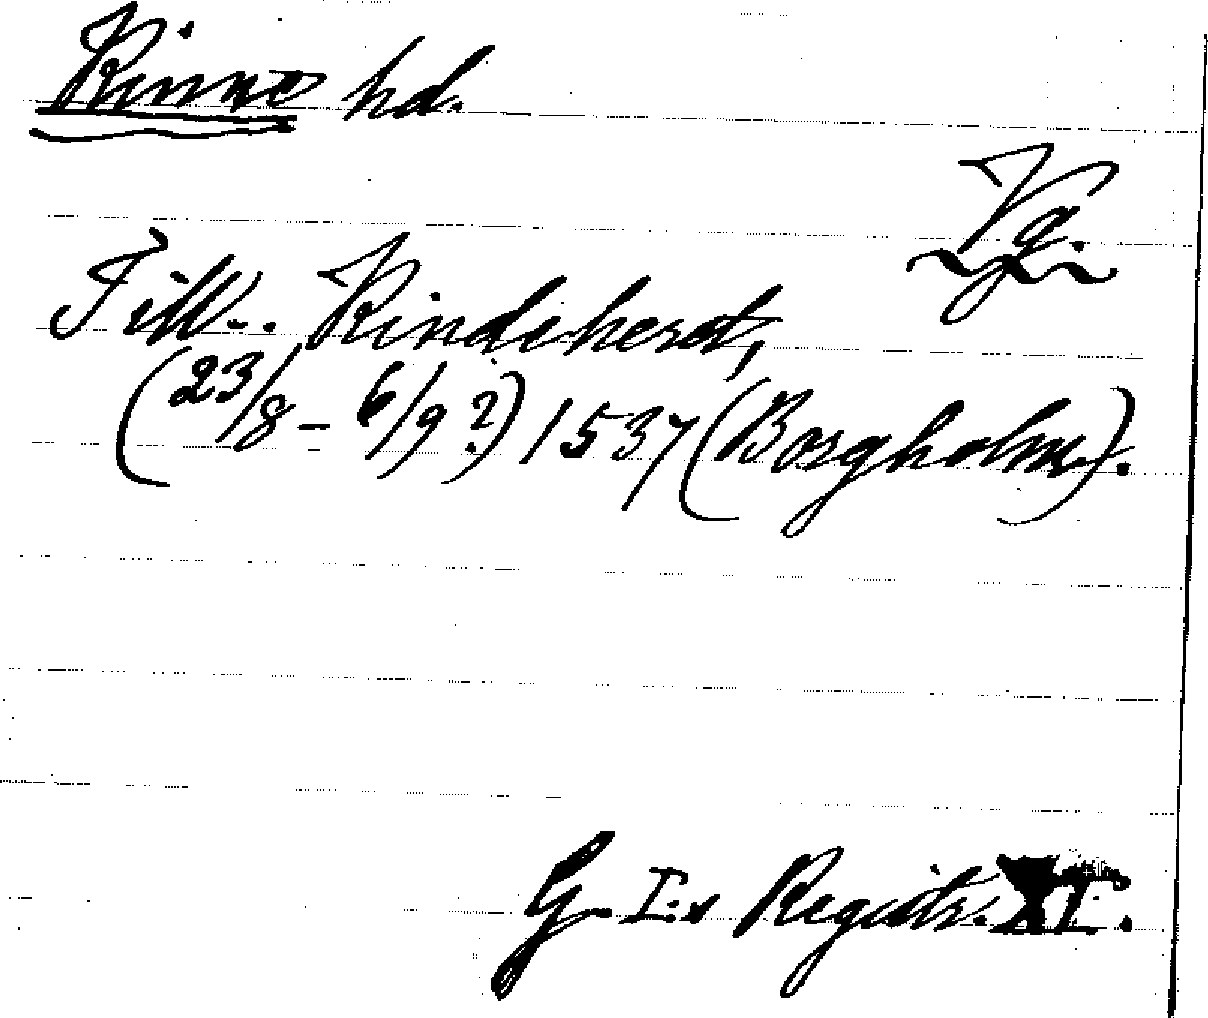 Kinne hd.
Vg.
Till.. Kindeherat,
(23/8 – 6/9 ?) 1537 (Borgholm).
G. I:s Registr. XI.